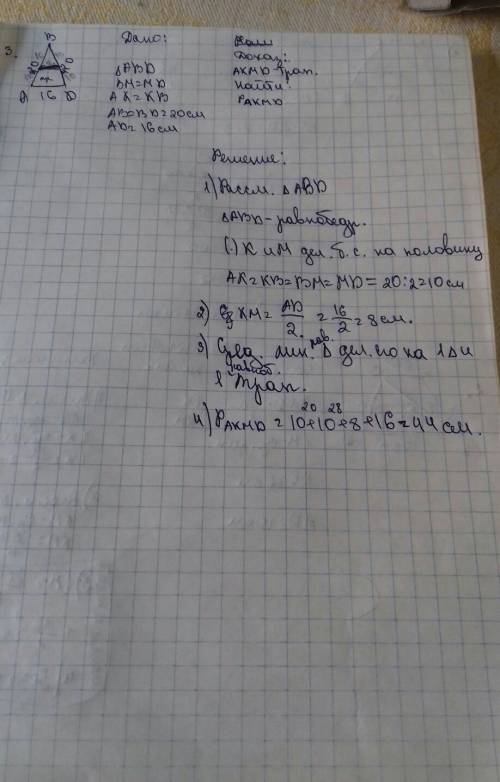 3.
B
20
20
A 16 D
Дано:
△ABD
BM=MD
AK=KB
AB=BD=20см
AD=16см
Доказ.:
AKMD-трап.
Найти:
PAKMD
Решение:
1) Рассм. △ABD
△ABD-равнобедр.
(·) K и M дел. б.с. на половину
AK=KB=BM=MD=20:2=10см
2) KM= AD/2 = 16/2 = 8см.
3) Сред. лин. рав. △ дел. его на 1△ и
1 равноб. трап.
20 28
4) PAKMD=10+10+8+16=44см.